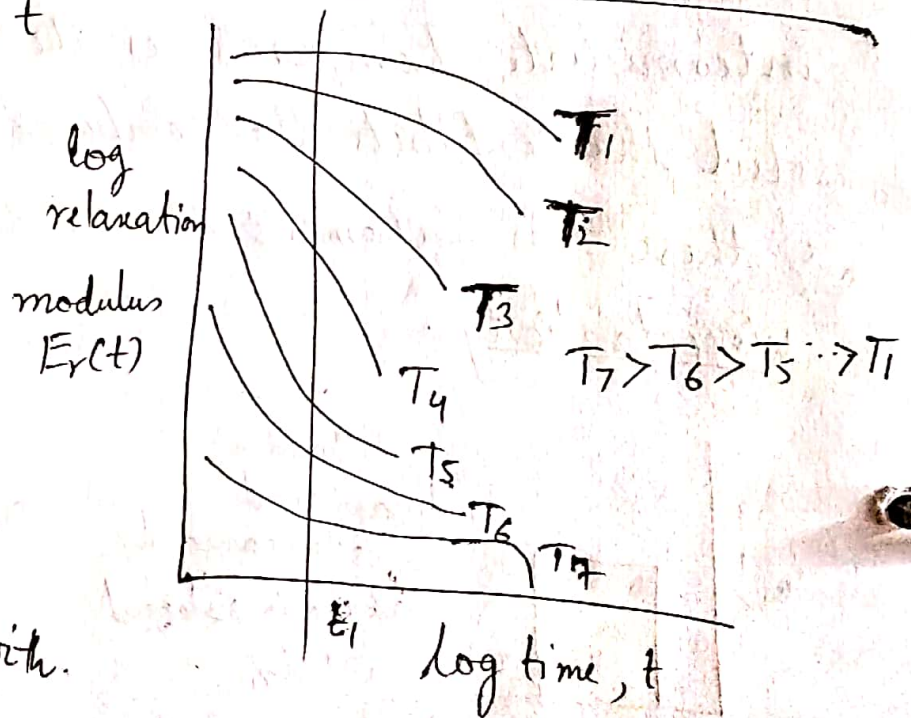 t
log
relaxation
modulus
Er(t)
T1
T2
T3
T4
T5
T6
T7
T7 > T6 > T5 ...> T1
t1
log time, t